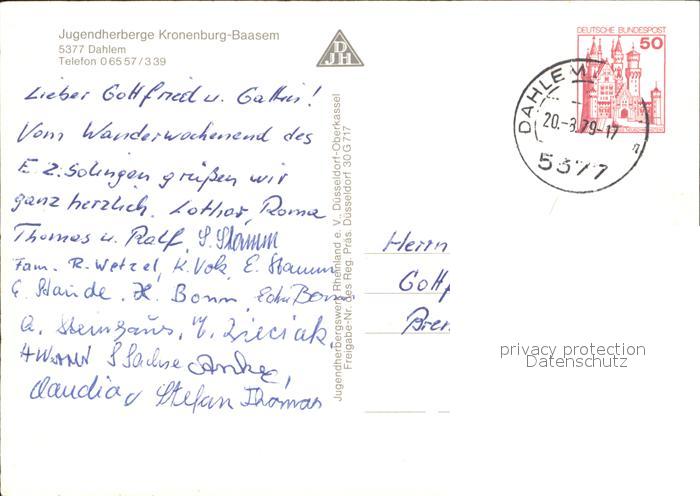 Jugendherberge Kronenburg-Baasem
5377 Dahlem
Telefon 06557/339
DJH
DEUTSCHE BUNDESPOST
50
DAHLEM
20.-8.79-17
n
5377
Lieber Gottfried u. Gattin!
Vom Wanderwochenend des
E Z. Solingen grüßen wir
ganz herzlich. Lothar, Roma
Thomas u. Ralf, S. Stamm
Fam. R. Wetzel, K. Volk, E. Stamm
Staude. H. Bonn,
A. Steinhaus,
S Sachse Anke,
Claudia Stefan Thomas
Jugendherbergswerk Rheinland e. V., Düsseldorf-Oberkassel
Freigabe-Nr. des Reg. Präs. Düsseldorf 30 G 717
Herrn
Gottf
Brem
privacy protection
Datenschutz